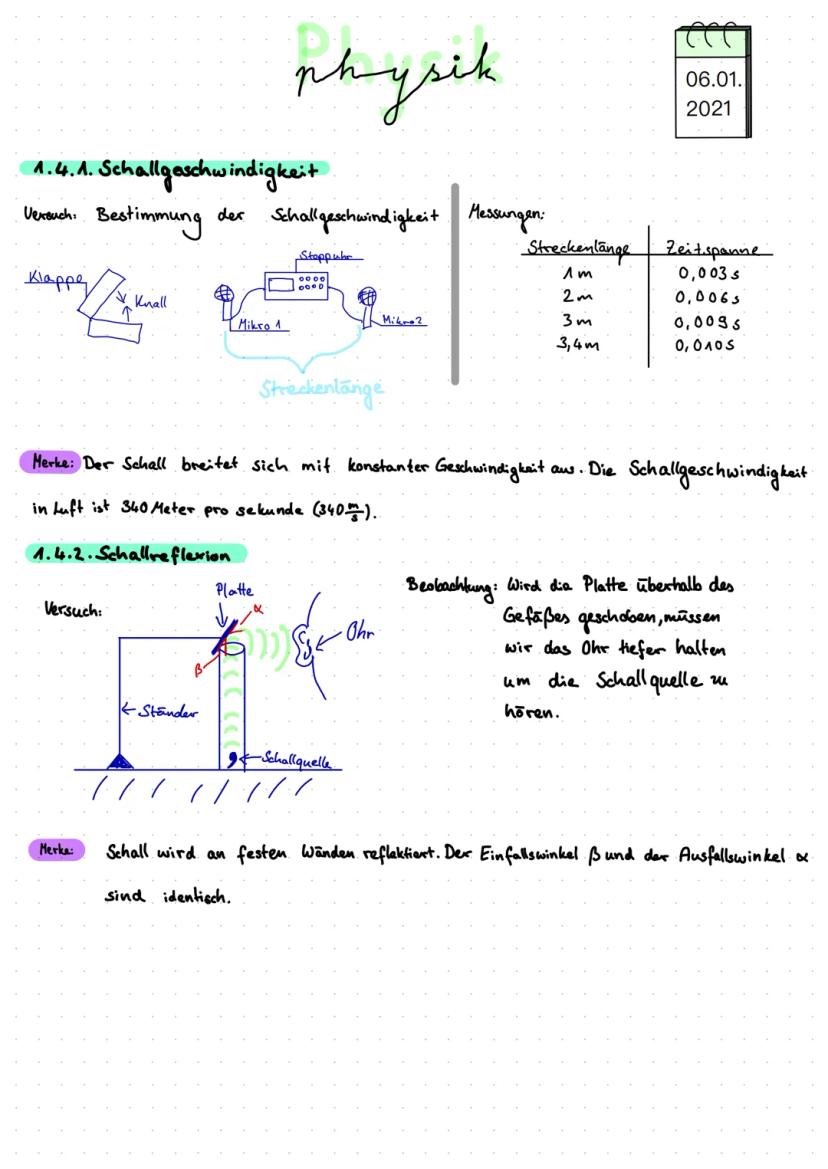 Physik
physik
06.01.
2021
1.4.1. Schallgeschwindigkeit
Versuch: Bestimmung der Schallgeschwindigkeit
Klappe
Knall
Stoppuhr
Mikro 1
Mikro 2
Streckenlänge
Messungen:
Streckenlänge Zeitspanne
1 m 0,003 s
2 m 0,006 s
3 m 0,009 s
3,4 m 0,010 s
Merke: Der Schall breitet sich mit konstanter Geschwindigkeit aus. Die Schallgeschwindigkeit
in Luft ist 340 Meter pro sekunde (340 m/s).
1.4.2. Schallreflexion
Versuch:
Platte
α
β
Ohr
Ständer
Schallquelle
Beobachtung: Wird die Platte überhalb des
Gefäßes geschoben, müssen
wir das Ohr tiefer halten
um die Schallquelle zu
hören.
Merke: Schall wird an festen Wänden reflektiert. Der Einfallswinkel β und der Ausfallswinkel α
sind identisch.